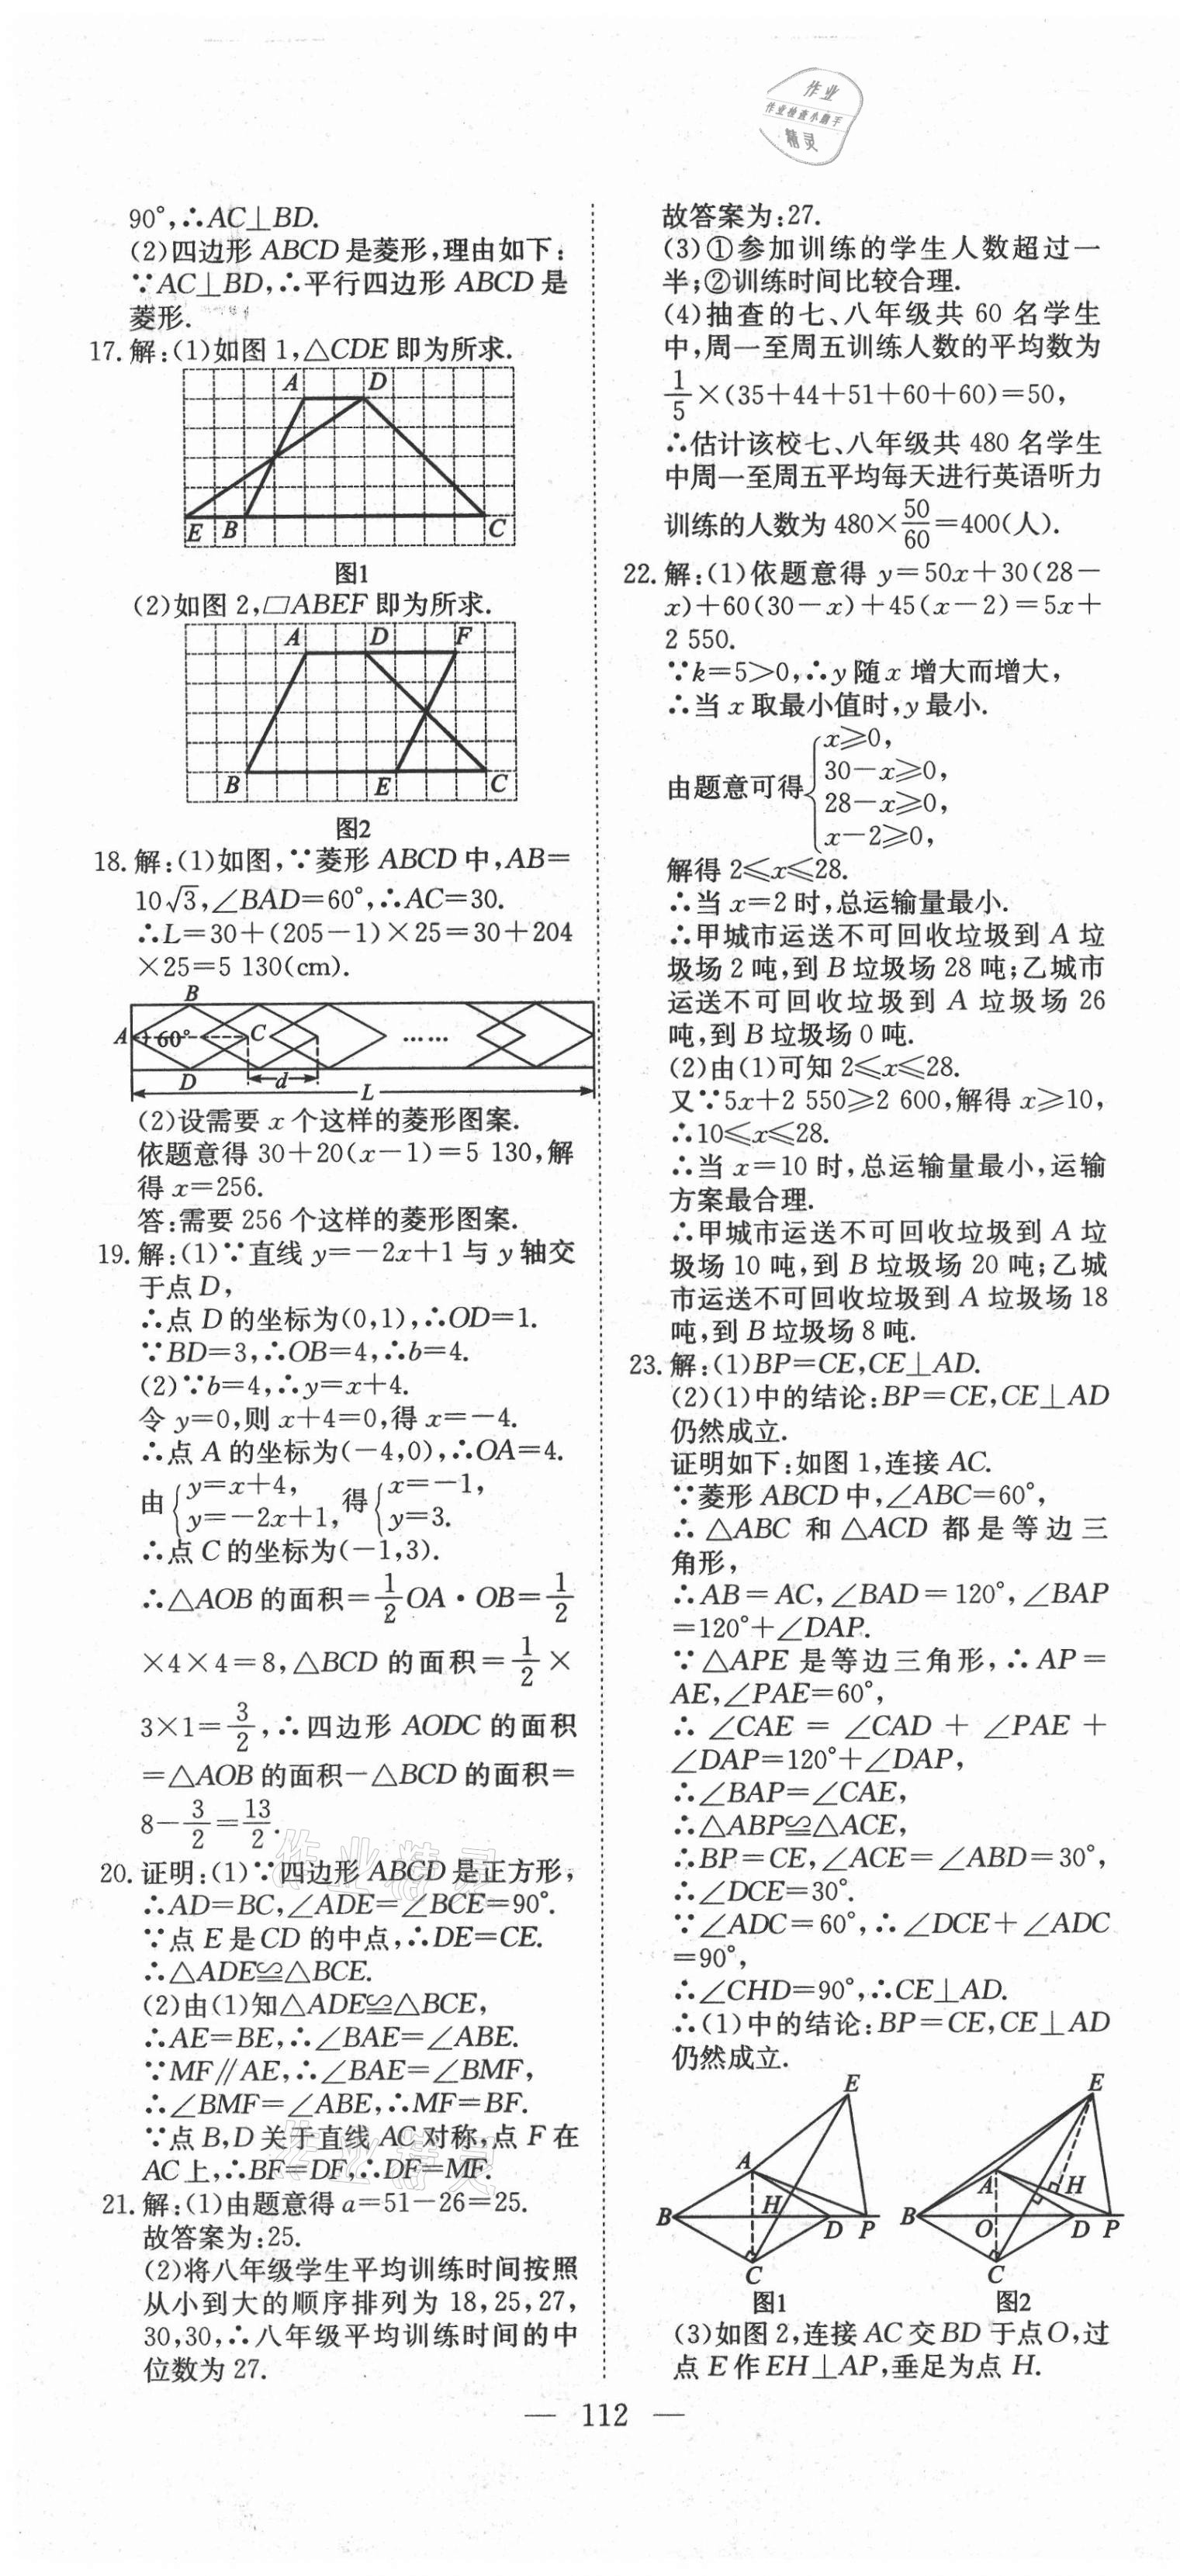 作业
作业检查小助手
精灵
90°,∴AC⊥BD.
(2)四边形 ABCD 是菱形,理由如下:
∵AC⊥BD,∴平行四边形 ABCD 是
菱形.
17.解:(1)如图 1,△CDE 即为所求.
A D
E B C
图1
(2)如图 2,▱ABEF 即为所求.
A D F
B E C
图2
18.解:(1)如图,∵菱形 ABCD 中,AB=
10√3,∠BAD=60°,∴AC=30.
∴L=30+(205-1)×25=30+204
×25=5 130(cm).
B
A 60° C ……
D d
L
(2)设需要 x 个这样的菱形图案.
依题意得 30+20(x-1)=5 130,解
得 x=256.
答:需要 256 个这样的菱形图案.
19.解:(1)∵直线 y=-2x+1 与 y 轴交
于点 D,
∴点 D 的坐标为(0,1),∴OD=1.
∵BD=3,∴OB=4,∴b=4.
(2)∵b=4,∴y=x+4.
令 y=0,则 x+4=0,得 x=-4.
∴点 A 的坐标为(-4,0),∴OA=4.
由{y=x+4, y=-2x+1, 得{x=-1, y=3.
∴点 C 的坐标为(-1,3).
∴△AOB 的面积=1/2 OA·OB=1/2
×4×4=8,△BCD 的面积=1/2×
3×1=3/2,∴四边形 AODC 的面积
=△AOB 的面积-△BCD 的面积=
8-3/2=13/2.
20.证明:(1)∵四边形 ABCD 是正方形,
∴AD=BC,∠ADE=∠BCE=90°.
∵点 E 是 CD 的中点,∴DE=CE.
∴△ADE≌△BCE.
(2)由(1)知△ADE≌△BCE,
∴AE=BE,∴∠BAE=∠ABE.
∵MF∥AE,∴∠BAE=∠BMF,
∴∠BMF=∠ABE,∴MF=BF.
∵点 B,D 关于直线 AC 对称,点 F 在
AC 上,∴BF=DF,∴DF=MF.
21.解:(1)由题意得 a=51-26=25.
故答案为:25.
(2)将八年级学生平均训练时间按照
从小到大的顺序排列为 18,25,27,
30,30,∴八年级平均训练时间的中
位数为 27.
故答案为:27.
(3)①参加训练的学生人数超过一
半;②训练时间比较合理.
(4)抽查的七、八年级共 60 名学生
中,周一至周五训练人数的平均数为
1/5×(35+44+51+60+60)=50,
∴估计该校七、八年级共 480 名学生
中周一至周五平均每天进行英语听力
训练的人数为 480×50/60=400(人).
22.解:(1)依题意得 y=50x+30(28-
x)+60(30-x)+45(x-2)=5x+
2 550.
∵k=5>0,∴y 随 x 增大而增大,
∴当 x 取最小值时,y 最小.
由题意可得{x≥0,
30-x≥0,
28-x≥0,
x-2≥0,
解得 2≤x≤28.
∴当 x=2 时,总运输量最小.
∴甲城市运送不可回收垃圾到 A 垃
圾场 2 吨,到 B 垃圾场 28 吨;乙城市
运送不可回收垃圾到 A 垃圾场 26
吨,到 B 垃圾场 0 吨.
(2)由(1)可知 2≤x≤28.
又∵5x+2 550≥2 600,解得 x≥10,
∴10≤x≤28.
∴当 x=10 时,总运输量最小,运输
方案最合理.
∴甲城市运送不可回收垃圾到 A 垃
圾场 10 吨,到 B 垃圾场 20 吨;乙城
市运送不可回收垃圾到 A 垃圾场 18
吨,到 B 垃圾场 8 吨.
23.解:(1)BP=CE,CE⊥AD.
(2)(1)中的结论:BP=CE,CE⊥AD
仍然成立.
证明如下:如图 1,连接 AC.
∵菱形 ABCD 中,∠ABC=60°,
∴△ABC 和△ACD 都是等边三
角形,
∴AB=AC,∠BAD=120°,∠BAP
=120°+∠DAP.
∵△APE 是等边三角形,∴AP=
AE,∠PAE=60°,
∴∠CAE=∠CAD+∠PAE+
∠DAP=120°+∠DAP,
∴∠BAP=∠CAE,
∴△ABP≌△ACE,
∴BP=CE,∠ACE=∠ABD=30°,
∴∠DCE=30°.
∵∠ADC=60°,∴∠DCE+∠ADC
=90°,
∴∠CHD=90°,∴CE⊥AD.
∴(1)中的结论:BP=CE,CE⊥AD
仍然成立.
E E
A H A H
B D P B O D P
C C
图1 图2
(3)如图 2,连接 AC 交 BD 于点 O,过
点 E 作 EH⊥AP,垂足为点 H.
作业精灵
作业精灵
— 112 —